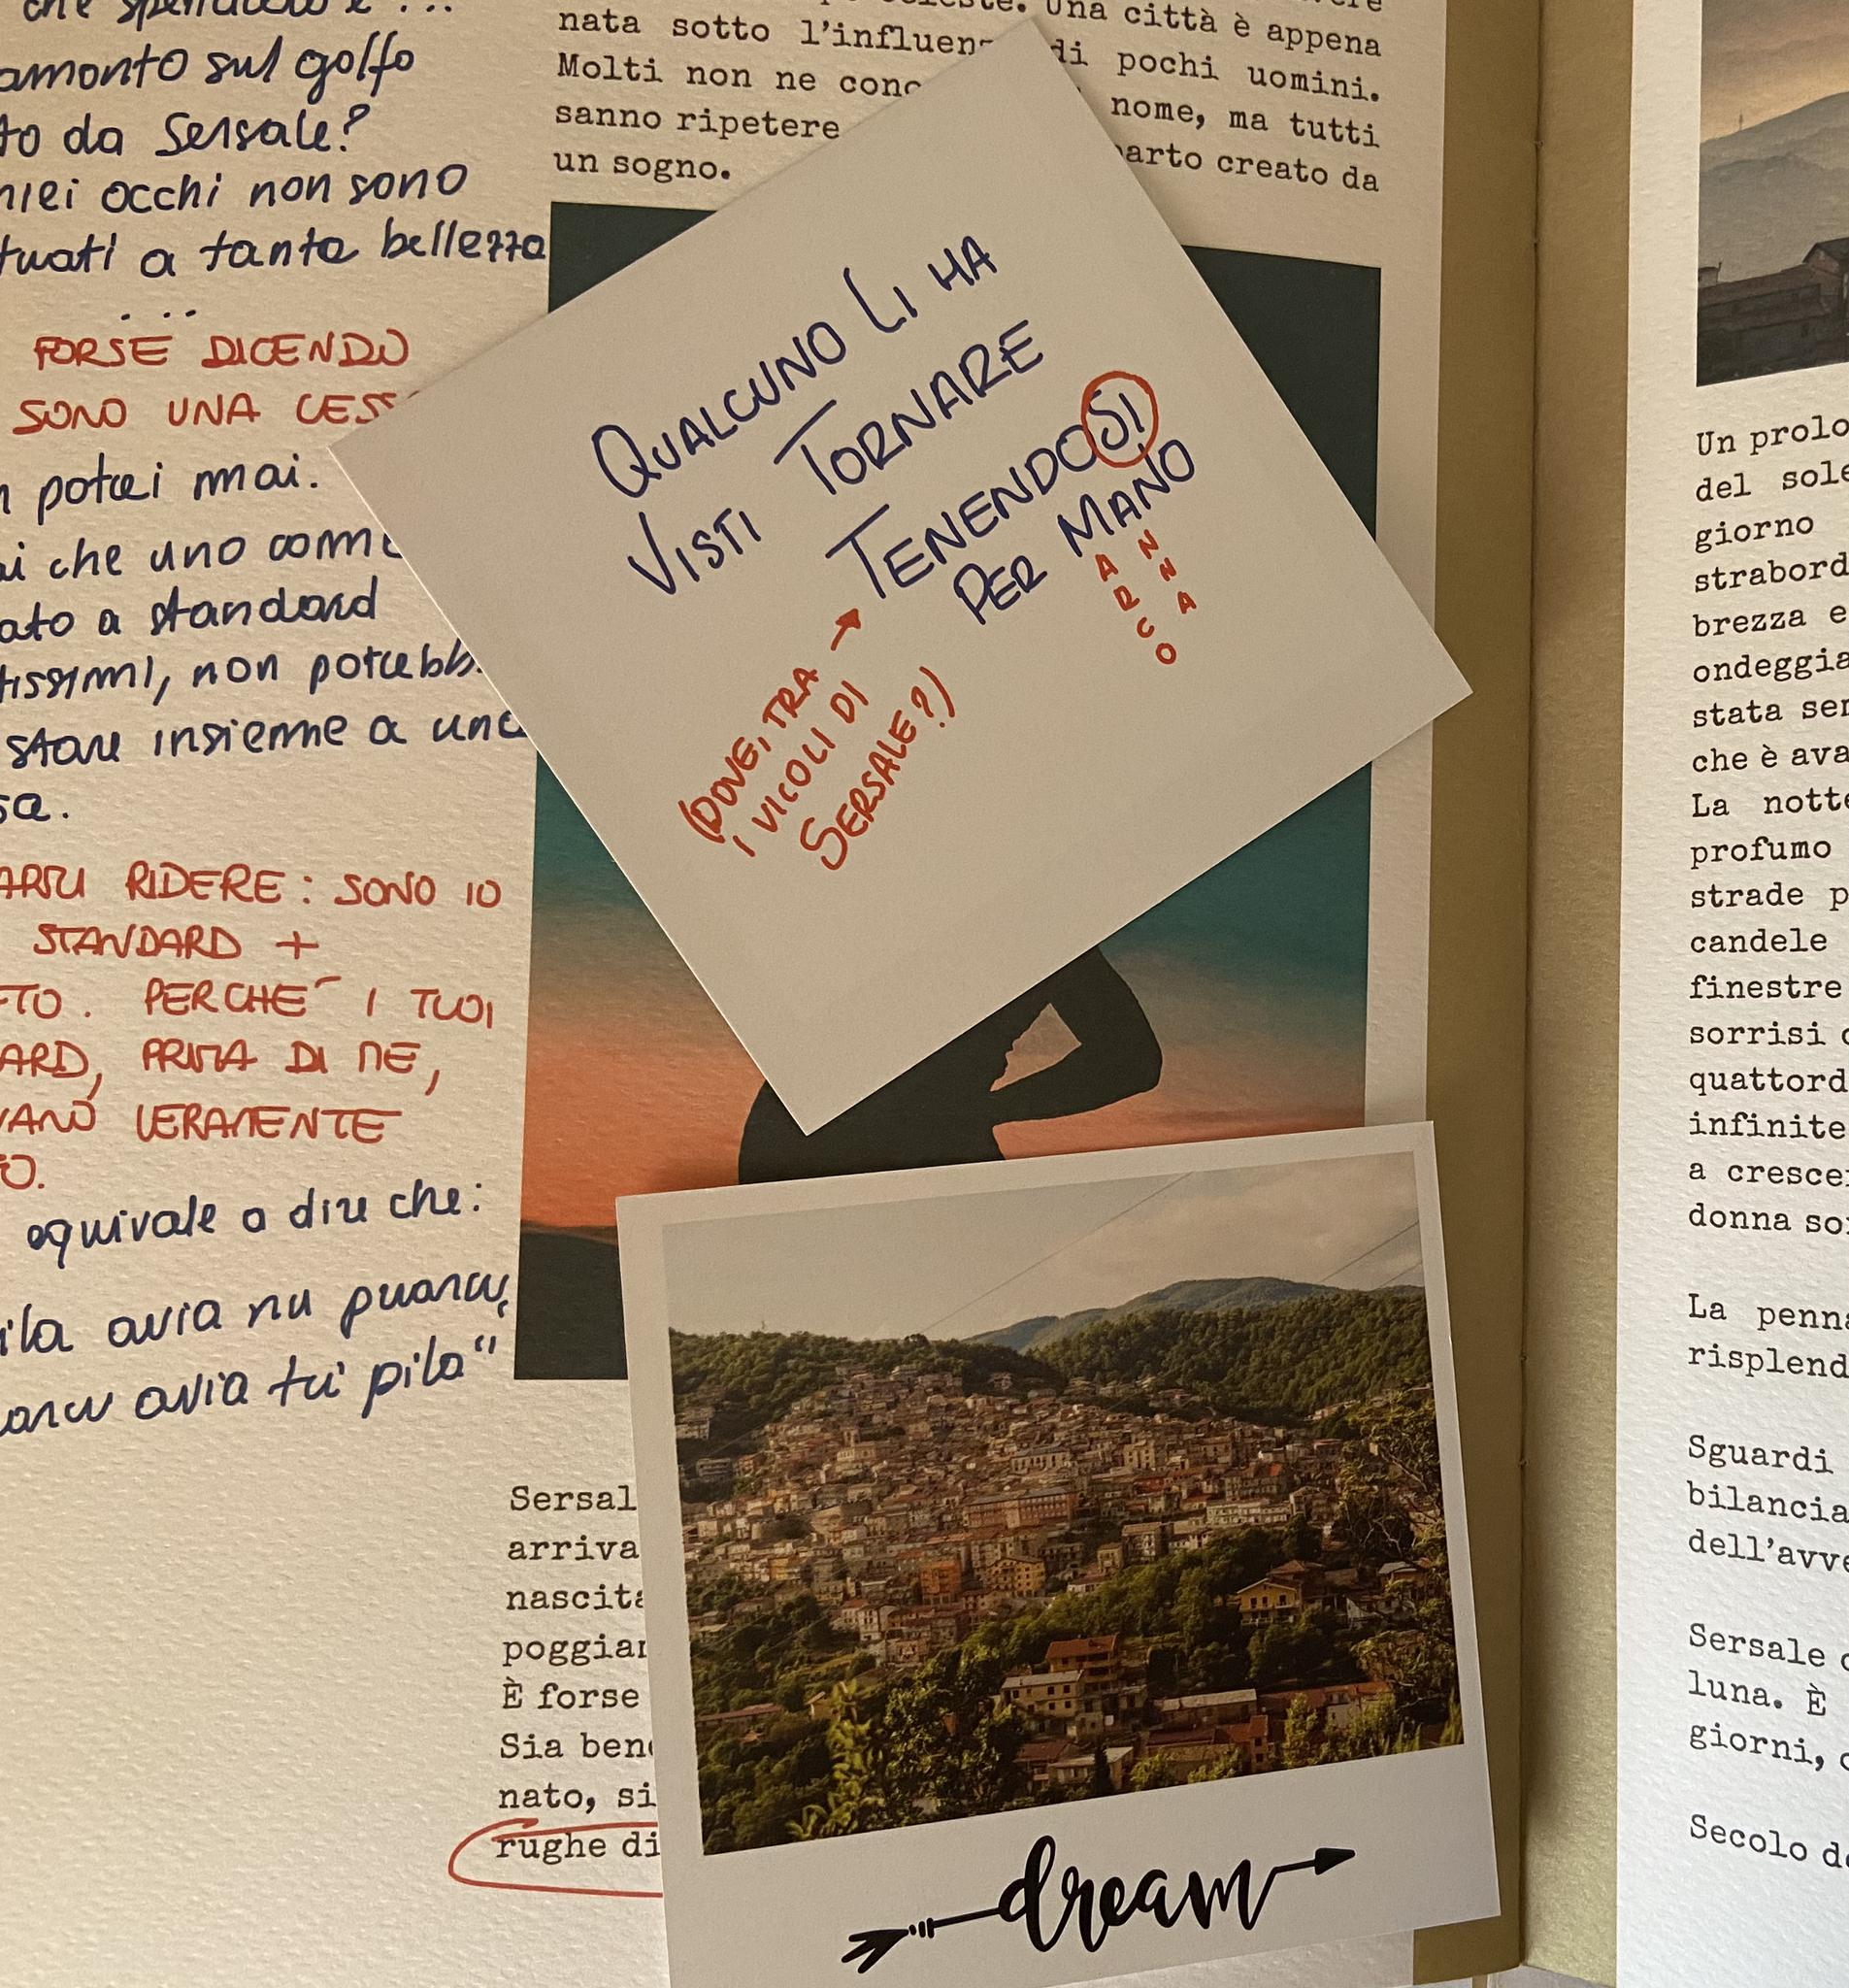 che spettacolo è ...
amonto sul golfo
to da Sersale?
miei occhi non sono
tuati a tanta bellezza
...
FORSE DICENDO
SONO UNA CESS
n potrei mai.
ai che uno come
ato a standard
tissimi, non potrebb
stare insieme a una
sa.
FARTI RIDERE: SONO IO
STANDARD +
ETO. PERCHÉ I TUOI
ARD, PRIMA DI ME,
VANO VERAMENTE
O.
equivale a dire che:
ila avia nu puorcu,
orcu avia tri pila"
Una città è appena
nata sotto l'influen di pochi uomini.
Molti non ne cono nome, ma tutti
sanno ripetere parto creato da
un sogno.
QUALCUNO LI HA
VISTI TORNARE
TENENDOSI
PER MANO
ARCO
NNA
(DOVE, TRA
I VICOLI DI
SERSALE?)
Sersal
arriva
nascita
poggian
È forse
Sia bene
nato, si
rughe di
dream
Un prolo
del sole
giorno
strabord
brezza e
ondeggia
stata ser
che è ava
La notte
profumo
strade p
candele
finestre
sorrisi c
quattord
infinite
a crescer
donna so
La penna
risplend
Sguardi
bilancia
dell'avve
Sersale c
luna. È
giorni, c
Secolo do